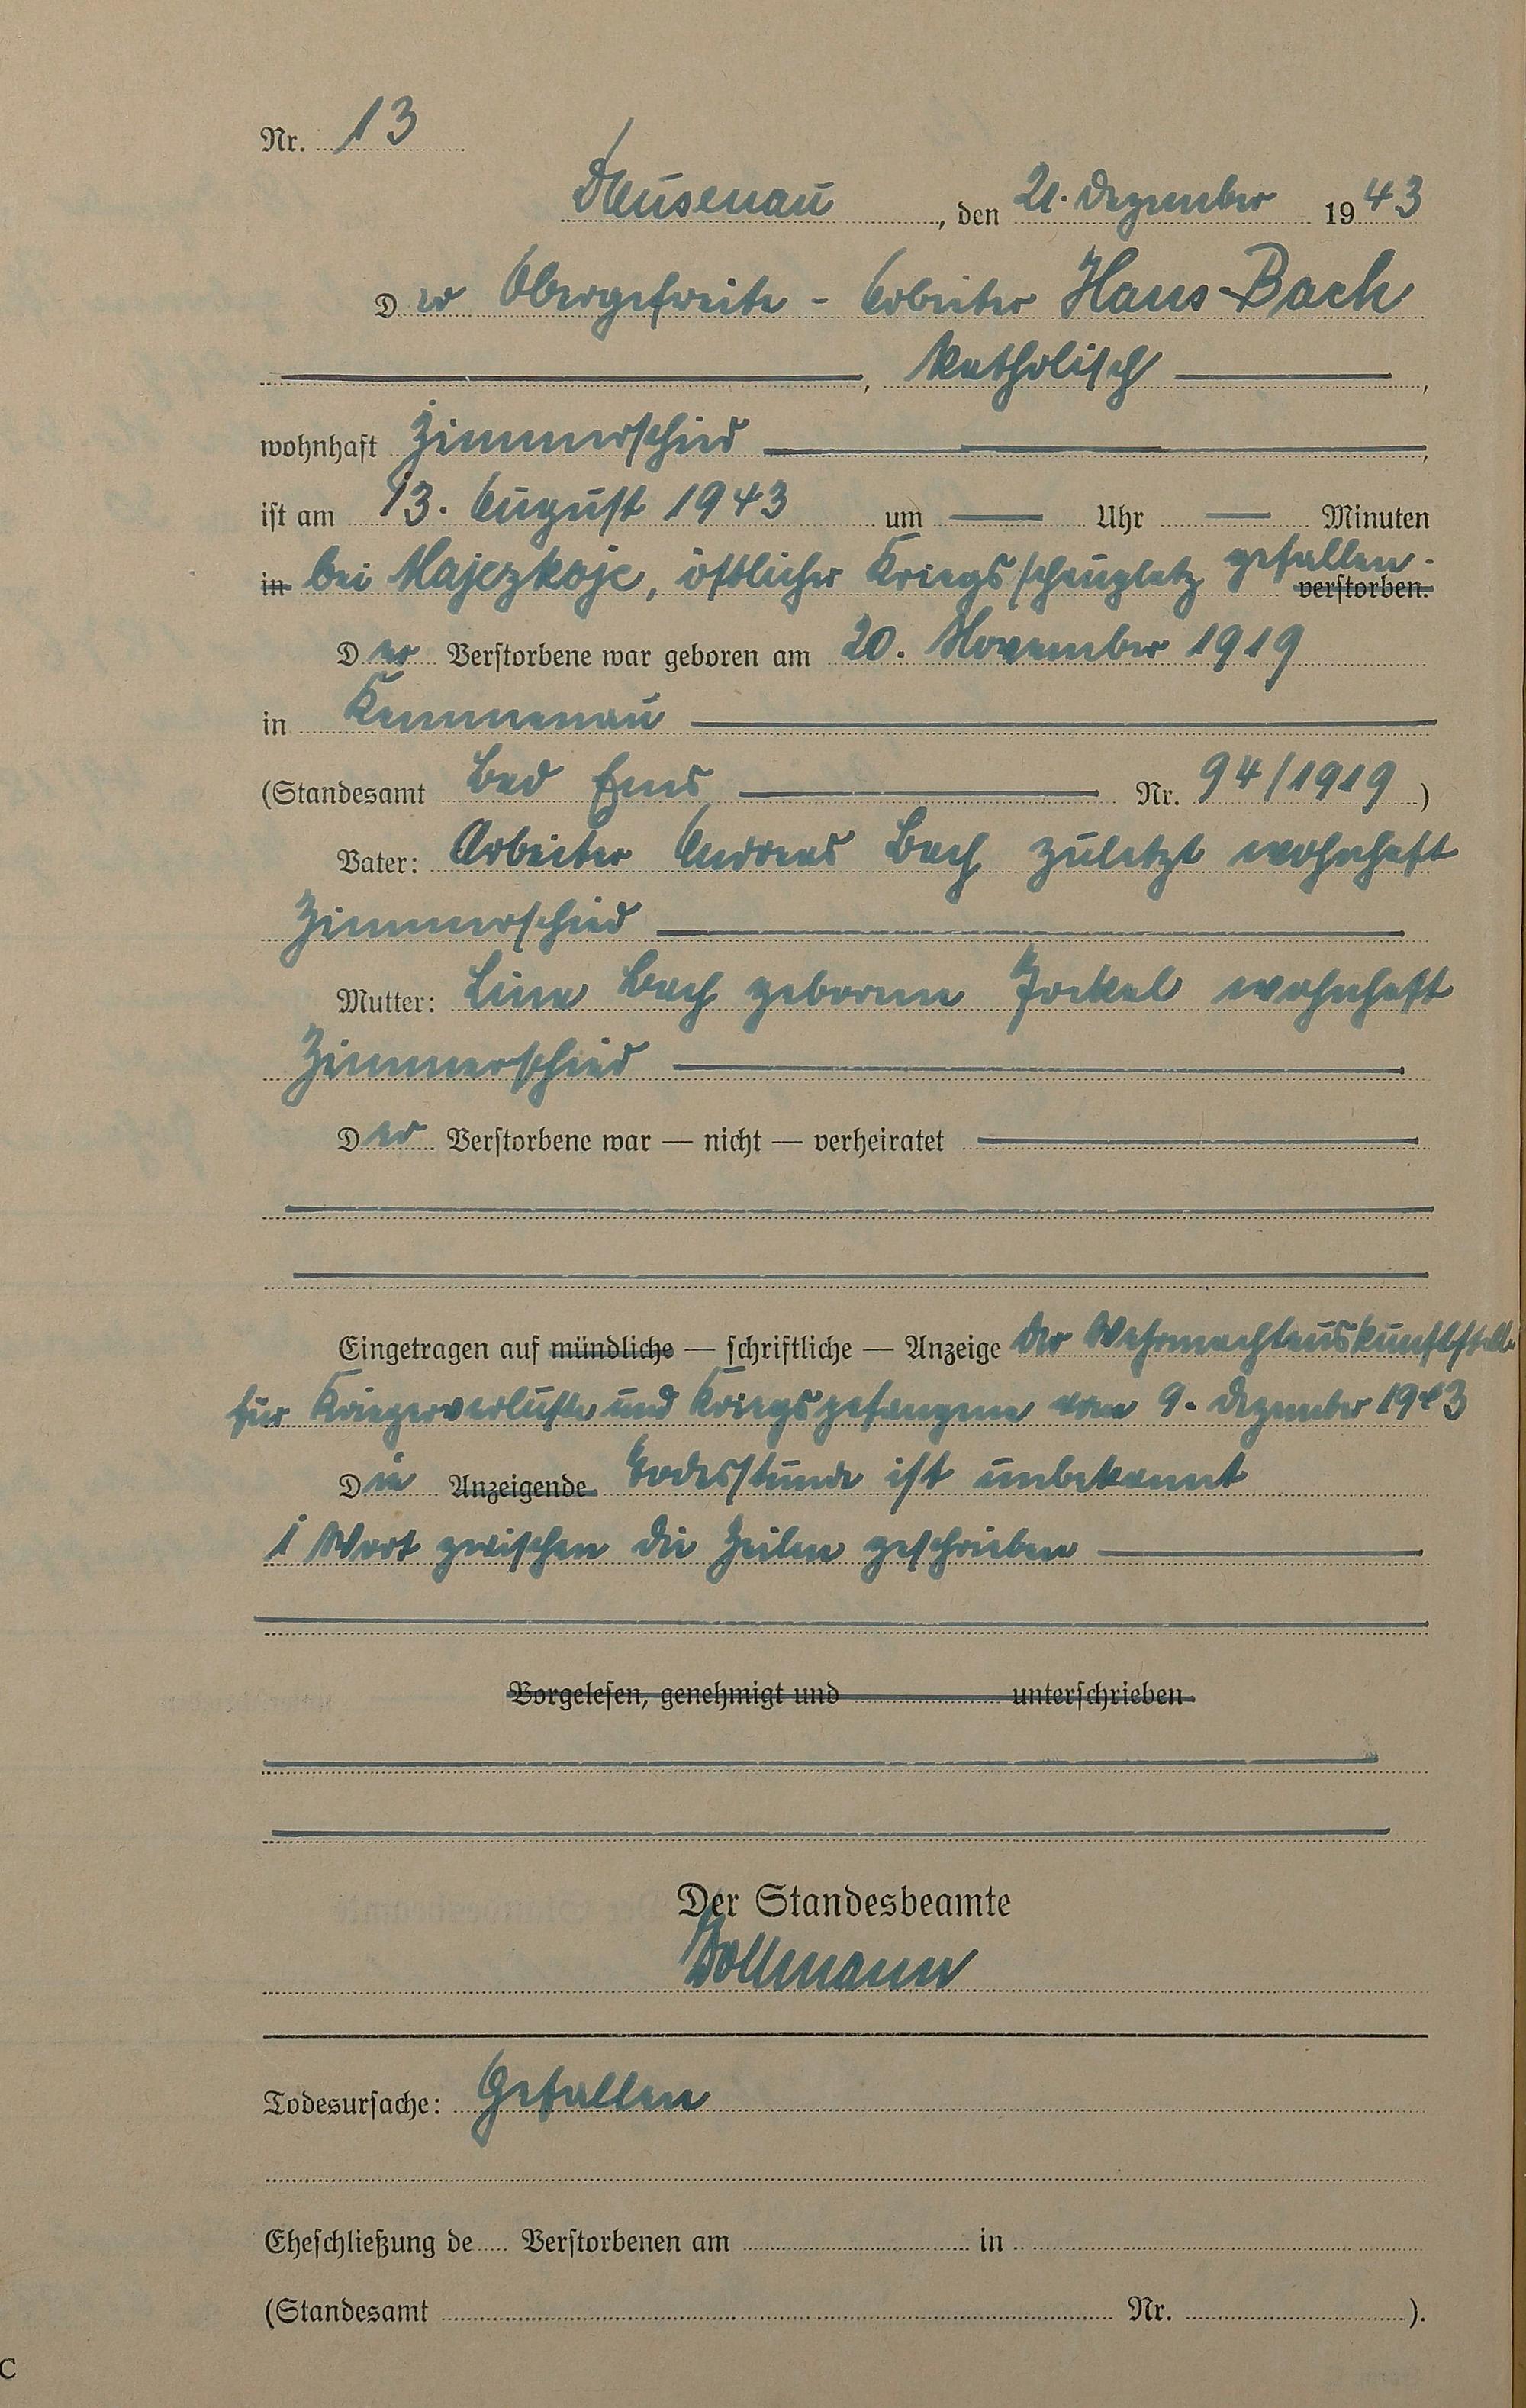 Nr. 13
Dausenau, den 21. Dezember 1943
Der Obergefreite - Arbeiter Hans Bach
, katholisch ,
wohnhaft Zimmerschied ,
ist am 13. August 1943 um — Uhr — Minuten
in bei Majezkoje, östlicher Kriegsschauplatz gefallen. verstorben.
Der Verstorbene war geboren am 20. November 1919
in Kemmenau
(Standesamt Bad Ems Nr. 94/1919)
Vater: Arbeiter Andreas Bach zuletzt wohnhaft
Zimmerschied
Mutter: Lina Bach geborene Jockel wohnhaft
Zimmerschied
Der Verstorbene war — nicht — verheiratet
Eingetragen auf mündliche — schriftliche — Anzeige der Wehrmachtauskunftstelle
für Kriegerverluste und Kriegsgefangene vom 9. Dezember 1943
Die Anzeigende Todesstunde ist unbekannt
1 Wort zwischen die Zeilen geschrieben
Vorgelesen, genehmigt und unterschrieben
Der Standesbeamte
Todesursache: Gefallen
Eheschließung de Verstorbenen am in
(Standesamt Nr. ).
C